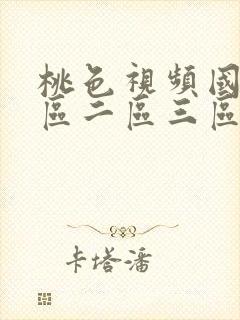 桃色視頻國
區二區三區
卡塔潘